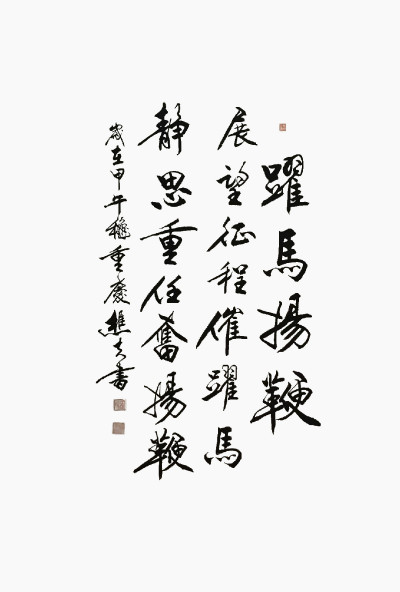 躍馬揚鞭
展望征程催躍馬
靜思重任奮揚鞭
歲在甲午穐重慶樵夫書